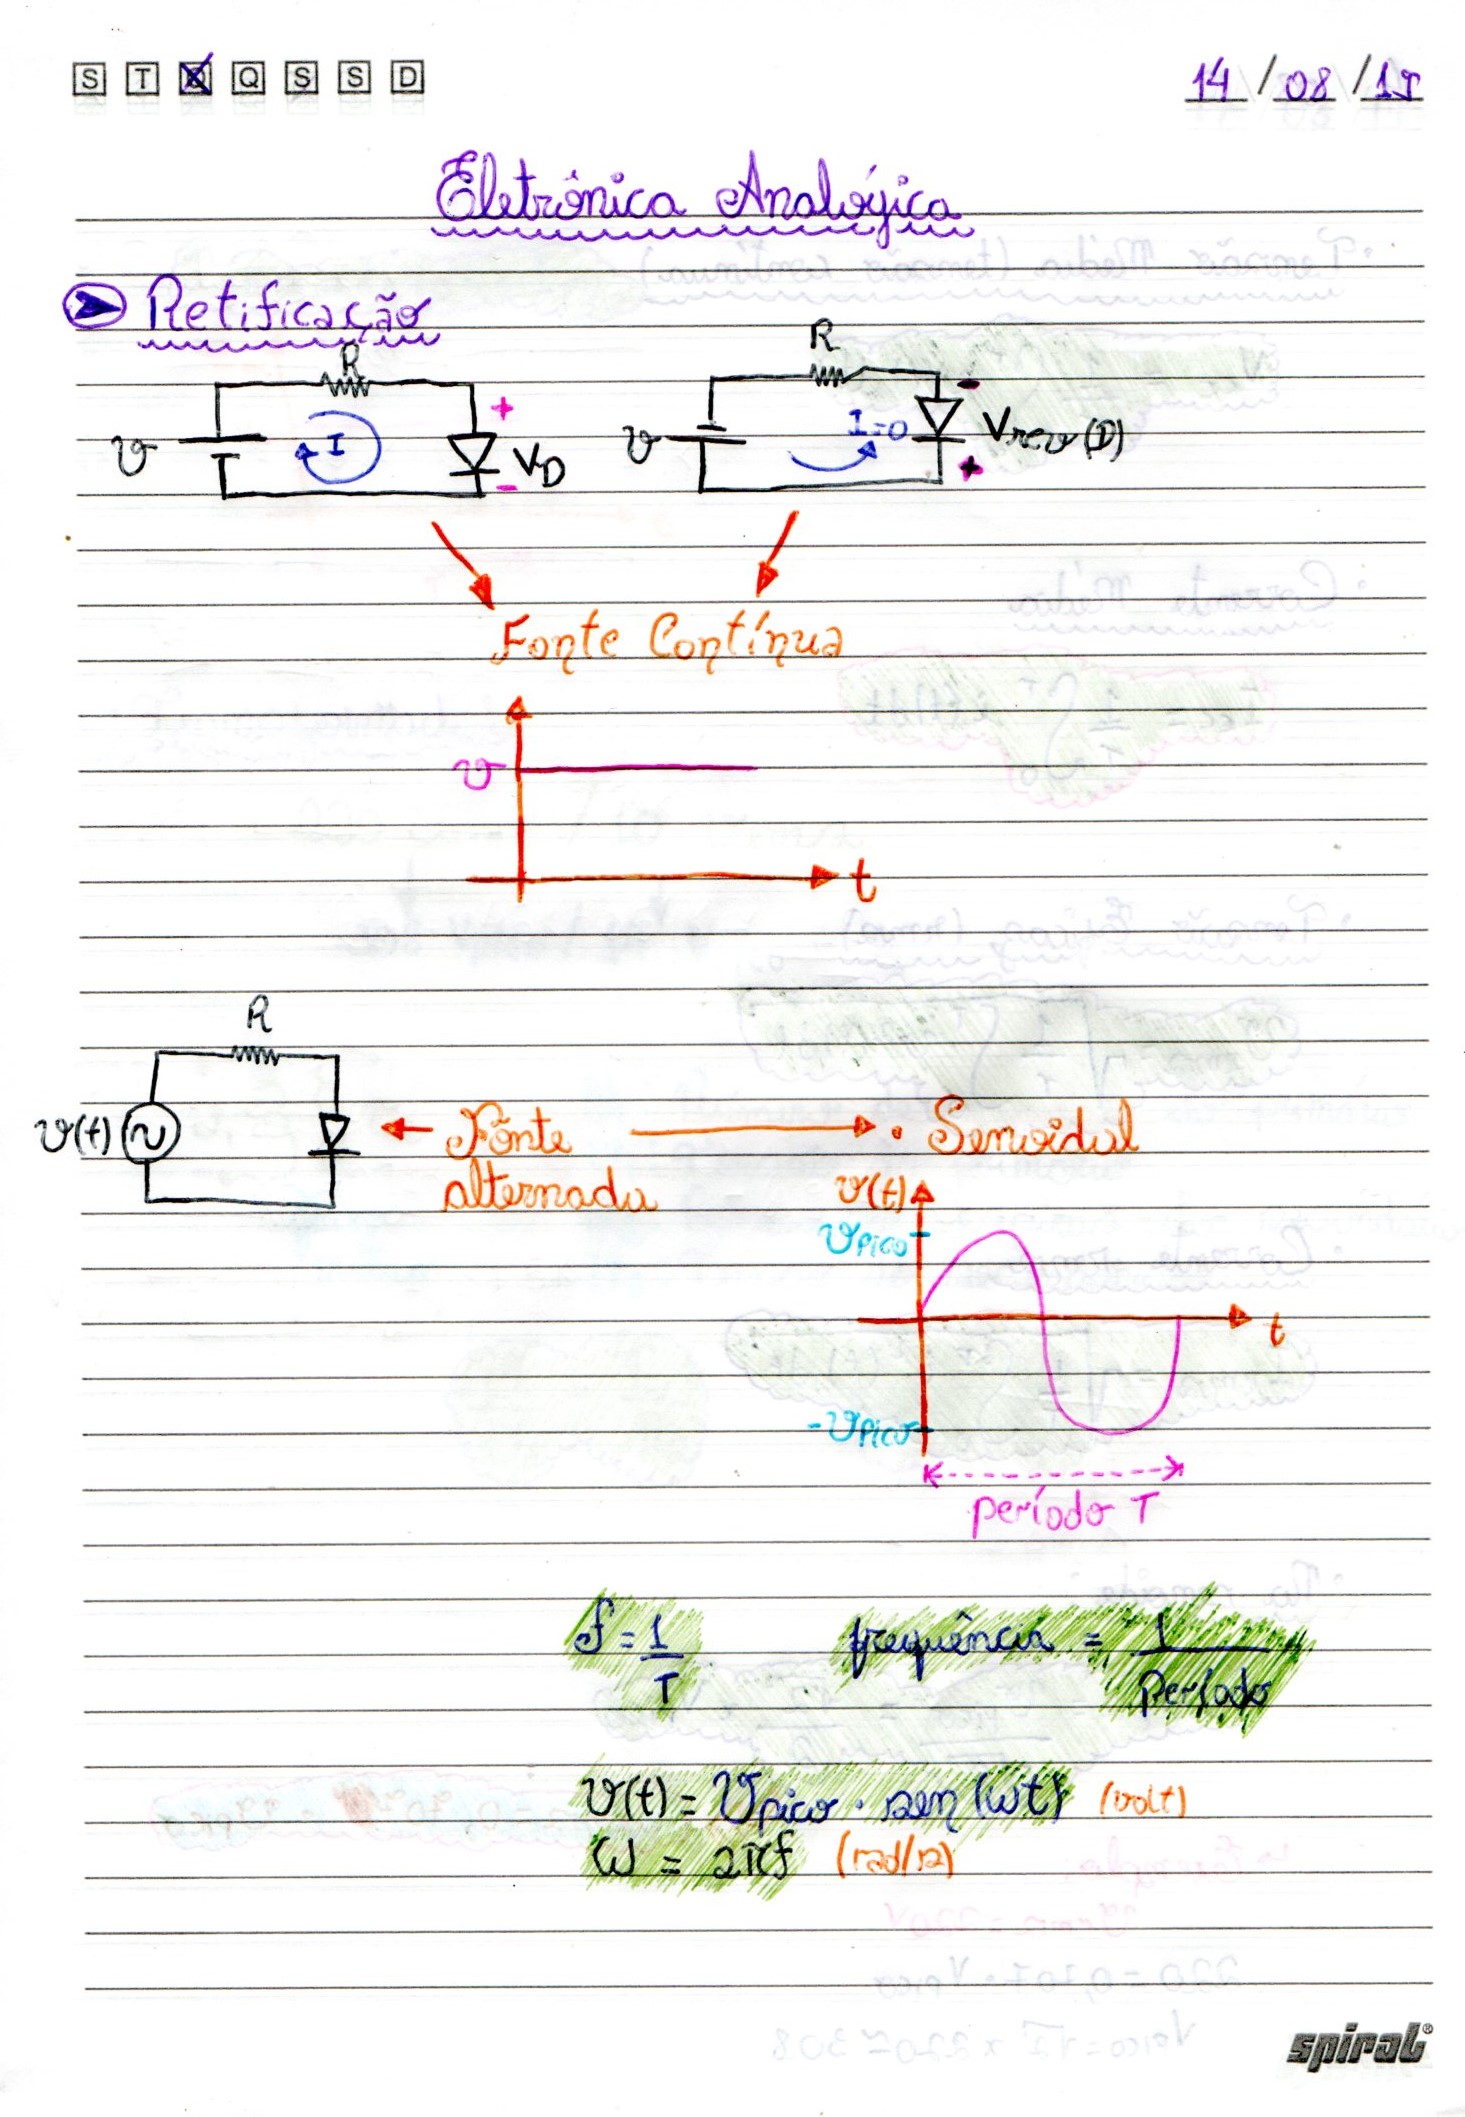 S T Q Q S S D
14/08/15
Eletrônica Analógica
Retificação
R
R
v I + VD -
v I=0 - Vrev(D) +
Fonte Contínua
v
t
R
v(t) ~ Fonte alternada . Senoidal
v(t)
vpico
t
-vpico
período T
f = 1/T frequência = 1/Período
v(t) = Vpico . sen (ωt) (volt)
ω = 2πf (rad/s)
spiral®